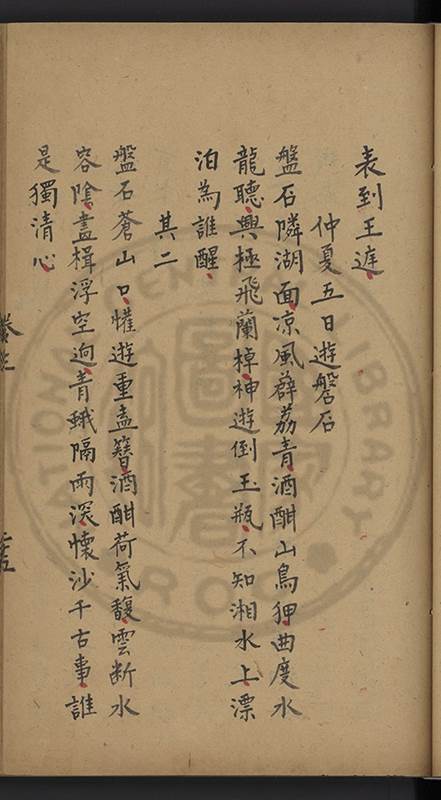 表到王庭
仲夏五日遊磐石
盤石隣湖面凉風薜荔青酒酣山鳥狎曲度水
龍聽興極飛蘭棹神遊倒玉瓶不知湘水上漂
泊為誰醒
其二
盤石蒼山口懽遊重盍簪酒酣荷氣馥雲断水
容陰畫楫浮空逈青蛾隔雨深懷沙千古事誰
是獨清心